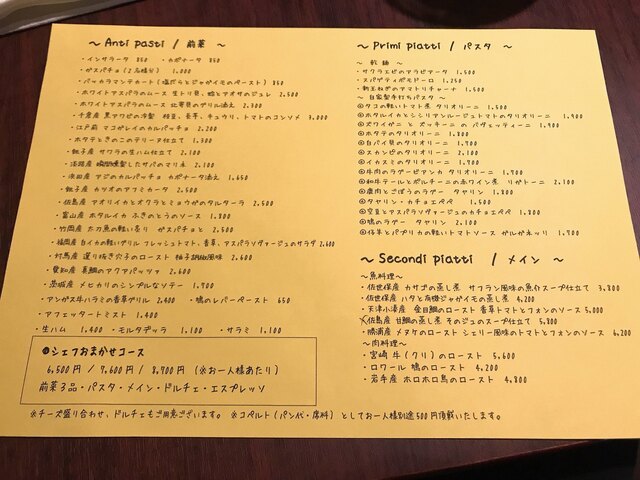 ～ Anti pasti / 前菜 ～
・インサラータ 850 ・カポナータ 850
・ガスパチョ(2名様分) 1,000
・バッカラマンテカート(塩だらとジャガイモのペースト) 850
・ホワイトアスパラのムース 生トリ貝、蛤とアオサのジュレ 2,500
・ホワイトアスパラのムース 北寄貝のグリル添え 2,300
・千倉産 黒アワビの冷製 枝豆、長芋、キュウリ、トマトのコンソメ 3,000
・江戸前 マコガレイのカルパッチョ 2,200
・ホタテときのこのテリーヌ仕立て 1,300
・銚子産 サワラの生ハム仕立て 2,100
・淡路産 瞬間燻製したサバのマリネ 2,100
・浜田産 アジのカルパッチョ カポナータ添え 1,650
・銚子産 カツオのアフミカータ 2,500
・佐島産 アオリイカとオクラとミョウガのタルターラ 2,500
・富山産 ホタルイカ ふきのとうのソース 1,800
・竹岡産 太刀魚の軽い炙り ガスパチョと 2,500
・福岡産 白イカの軽いグリル フレッシュトマト、香草、アスパラソヴァージュのサラダ 2,600
・対馬産 選り抜き穴子のロースト 柚子胡椒風味 2,600
・愛知産 真鯛のアクアパッツァ 2,600
・茨城産 メヒカリのシンプルなソテー 1,900
・アンガス牛ハラミの香草グリル 2,400 ・鳩のレバーペースト 650
・アフェッタートミスト 1,400
・生ハム 1,400 ・モルタデッラ 1,100 ・サラミ 1,100
●シェフおまかせコース
6,500円 / 7,600円 / 8,700円 (※お一人様あたり)
前菜3品・パスタ・メイン・ドルチェ・エスプレッソ
～ Primi piatti / パスタ ～
～ 乾麺 ～
・サクラエビのアラビアータ 1,500
・スパゲティポモドーロ 1,250
・新玉ねぎのアマトリチャーナ 1,500
～ 自家製手打ちパスタ ～
◎タコの軽いトマト煮 タリオリーニ 1,500
◎ホタルイカとシチリアンルージュトマトのタリオリーニ 1,900
◎ズワイガニ と ズッキーニ の パヴェッティーニ 1,900
◎ホタテのタリオリーニ 1,800
◎白バイ貝のタリオリーニ 1,900
◎スカンピのタリオリーニ 2,100
◎イカスミのタリオリーニ 1,900
◎牛肉のラグービアンカ タリオリーニ 1,700
◎和牛テールとポルチーニの赤ワイン煮 リガトーニ 2,100
◎鹿肉とごぼうのラグー タヤリン 1,800
◎タヤリン・カチョエペペ 1,500
◎空豆とアスパラソヴァージュのカチョエペペ 1,800
◎鳩のラグー タヤリン 2,100
◎仔羊とパプリカの軽いトマトソース ガルガネッリ 1,700
～ Secondi piatti / メイン ～
～魚料理～
・佐世保産 カサゴの蒸し煮 サフラン風味の魚介スープ仕立て 3,800
・佐世保産 ハタと有機ジャガイモの蒸し煮 4,200
・天津小湊産 金目鯛のロースト 香草トマトとフォンのソース 5,000
・佐島産 甘鯛の蒸し煮 そのジュのスープ仕立て 5,800
・勝浦産 メヌケのロースト シェリー風味のトマトとフォンのソース 6,200
～肉料理～
・宮崎 牛(クリ)のロースト 5,600
・ロワール 鳩のロースト 4,200
・岩手産 ホロホロ鳥のロースト 4,800
※チーズ盛り合わせ、ドルチェもご用意ございます。 ※コペルト(パン代・席料)としてお一人様別途500円頂戴いたします。